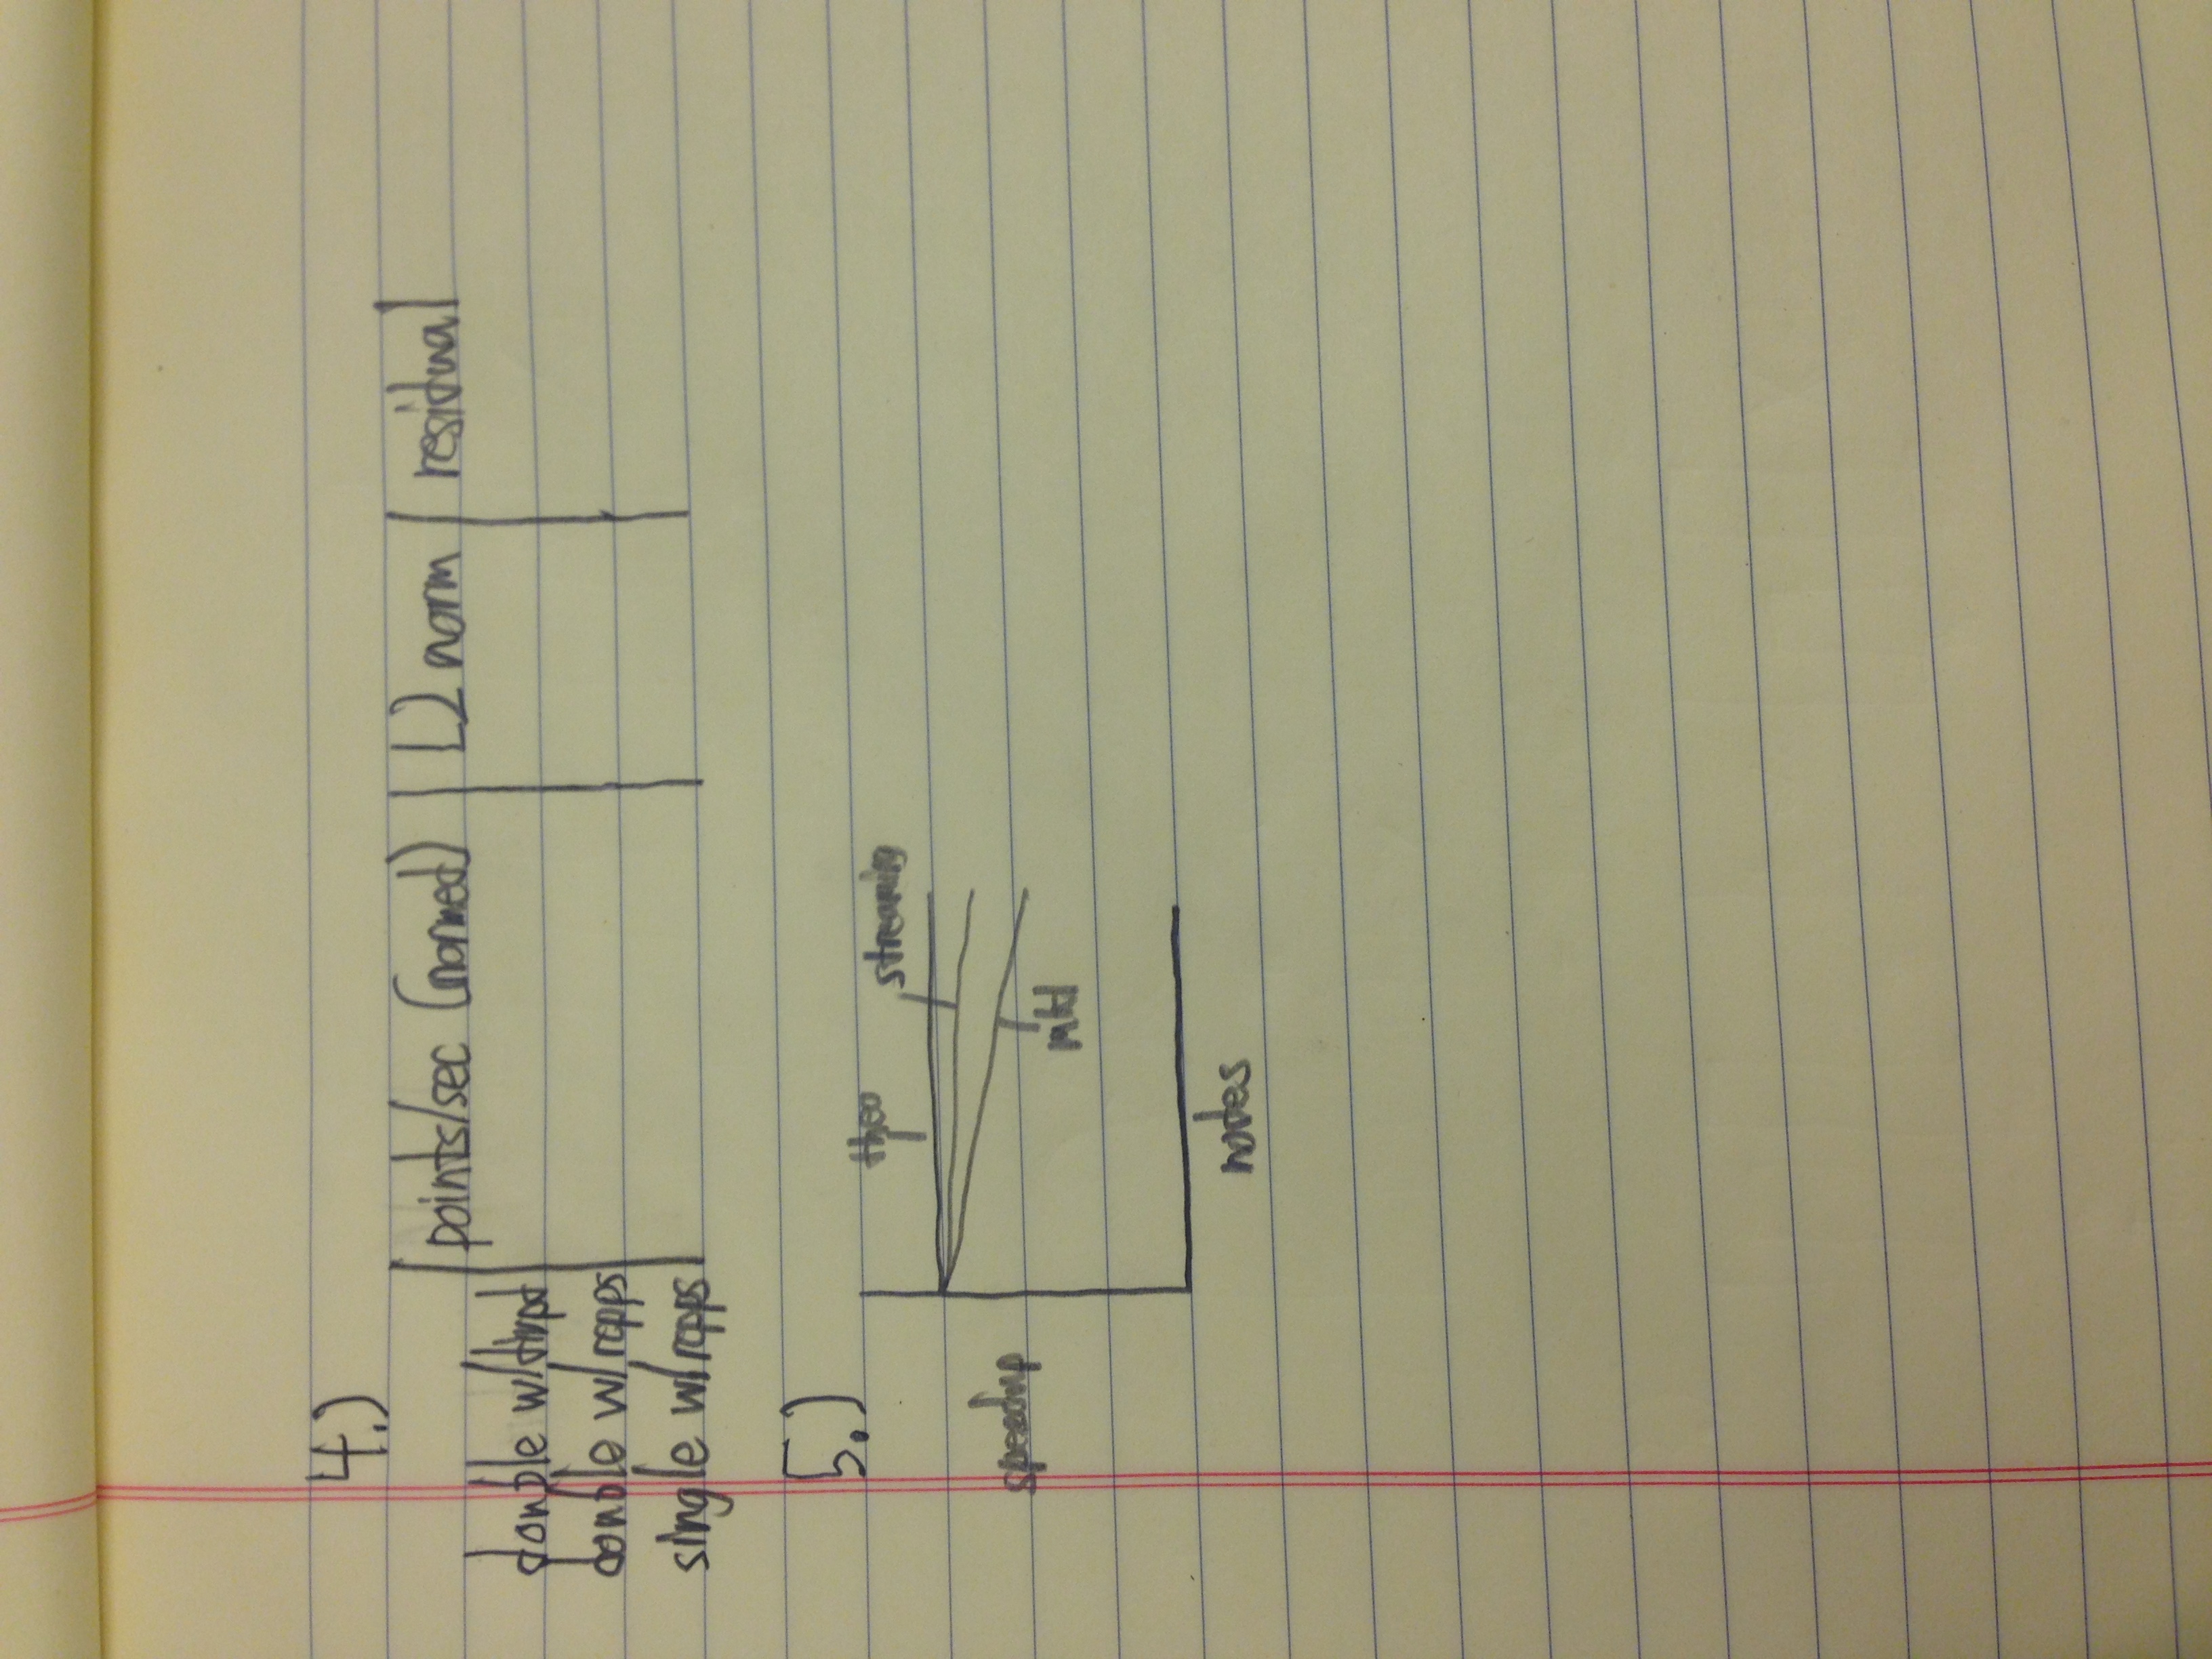 4.)
points/sec (normed) L2 norm residual
double w/
double w/rcpps
single w/rcpps
5.)
theo
streaming
speedup
mkl
nodes